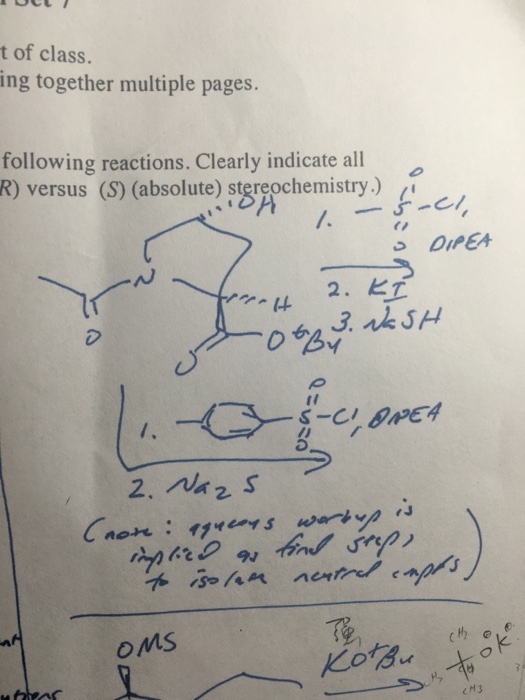 t of class.
ing together multiple pages.
following reactions. Clearly indicate all
R) versus (S) (absolute) stereochemistry.)
OH
1. — S - Cl,
O
O
DIPEA
2. KI
3. NaSH
N
O
H
O tBu
O
1.
O
S - Cl, DIPEA
O
2. Na2S
(note: aqueous workup is
implied as final step,
to isolate neutral cmpds)
OMS
強
KOtBu
CH3
CH3
CH3
OK